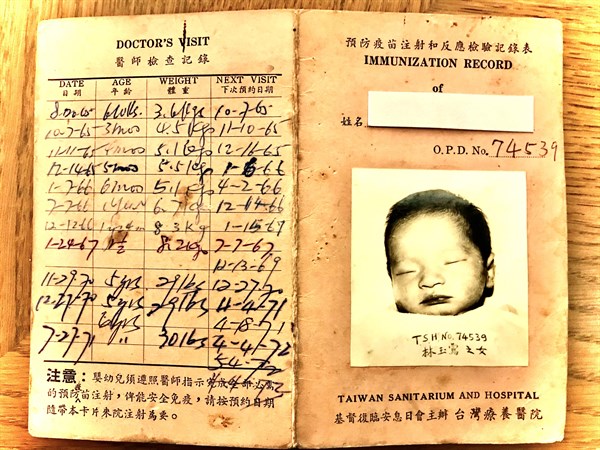 DOCTOR'S VISIT
醫師檢查記錄
DATE AGE WEIGHT NEXT VISIT
日期 年齡 體重 下次預約日期
6 wks. 3.6 kgs 10-7-65
10-7-65 3 mos 4.5 kgs 11-10-65
11-11-65 5.1 kgs 12-11-65
12-14-65 5 mos 5.5 kgs 1-6-66
1-7-66 6 mos 4-2-66
7-7-66 1 year 6.7 kgs
8.3 kgs 1-15-67
1-24-67 8.2 kgs 7-7-67
12-13-69
11-29-70 5 yrs 29 lbs 12-27-70
12-27-70 5 yrs 29 lbs 4-4-71
6 yrs 4-8-71
7-27-71 〃 30 lbs 4-4-72
注意：嬰幼兒須遵照醫師指示完成
的預防苗注射，俾能安全免疫，請按預約日期
隨帶本卡片來院注射爲要。
預防疫苗注射和反應檢驗記錄表
IMMUNIZATION RECORD
of
姓名
O.P.D. No. 74539
TSH No. 74539
林玉鶯之女
TAIWAN SANITARIUM AND HOSPITAL
基督復臨安息日會主辦 台灣療養醫院